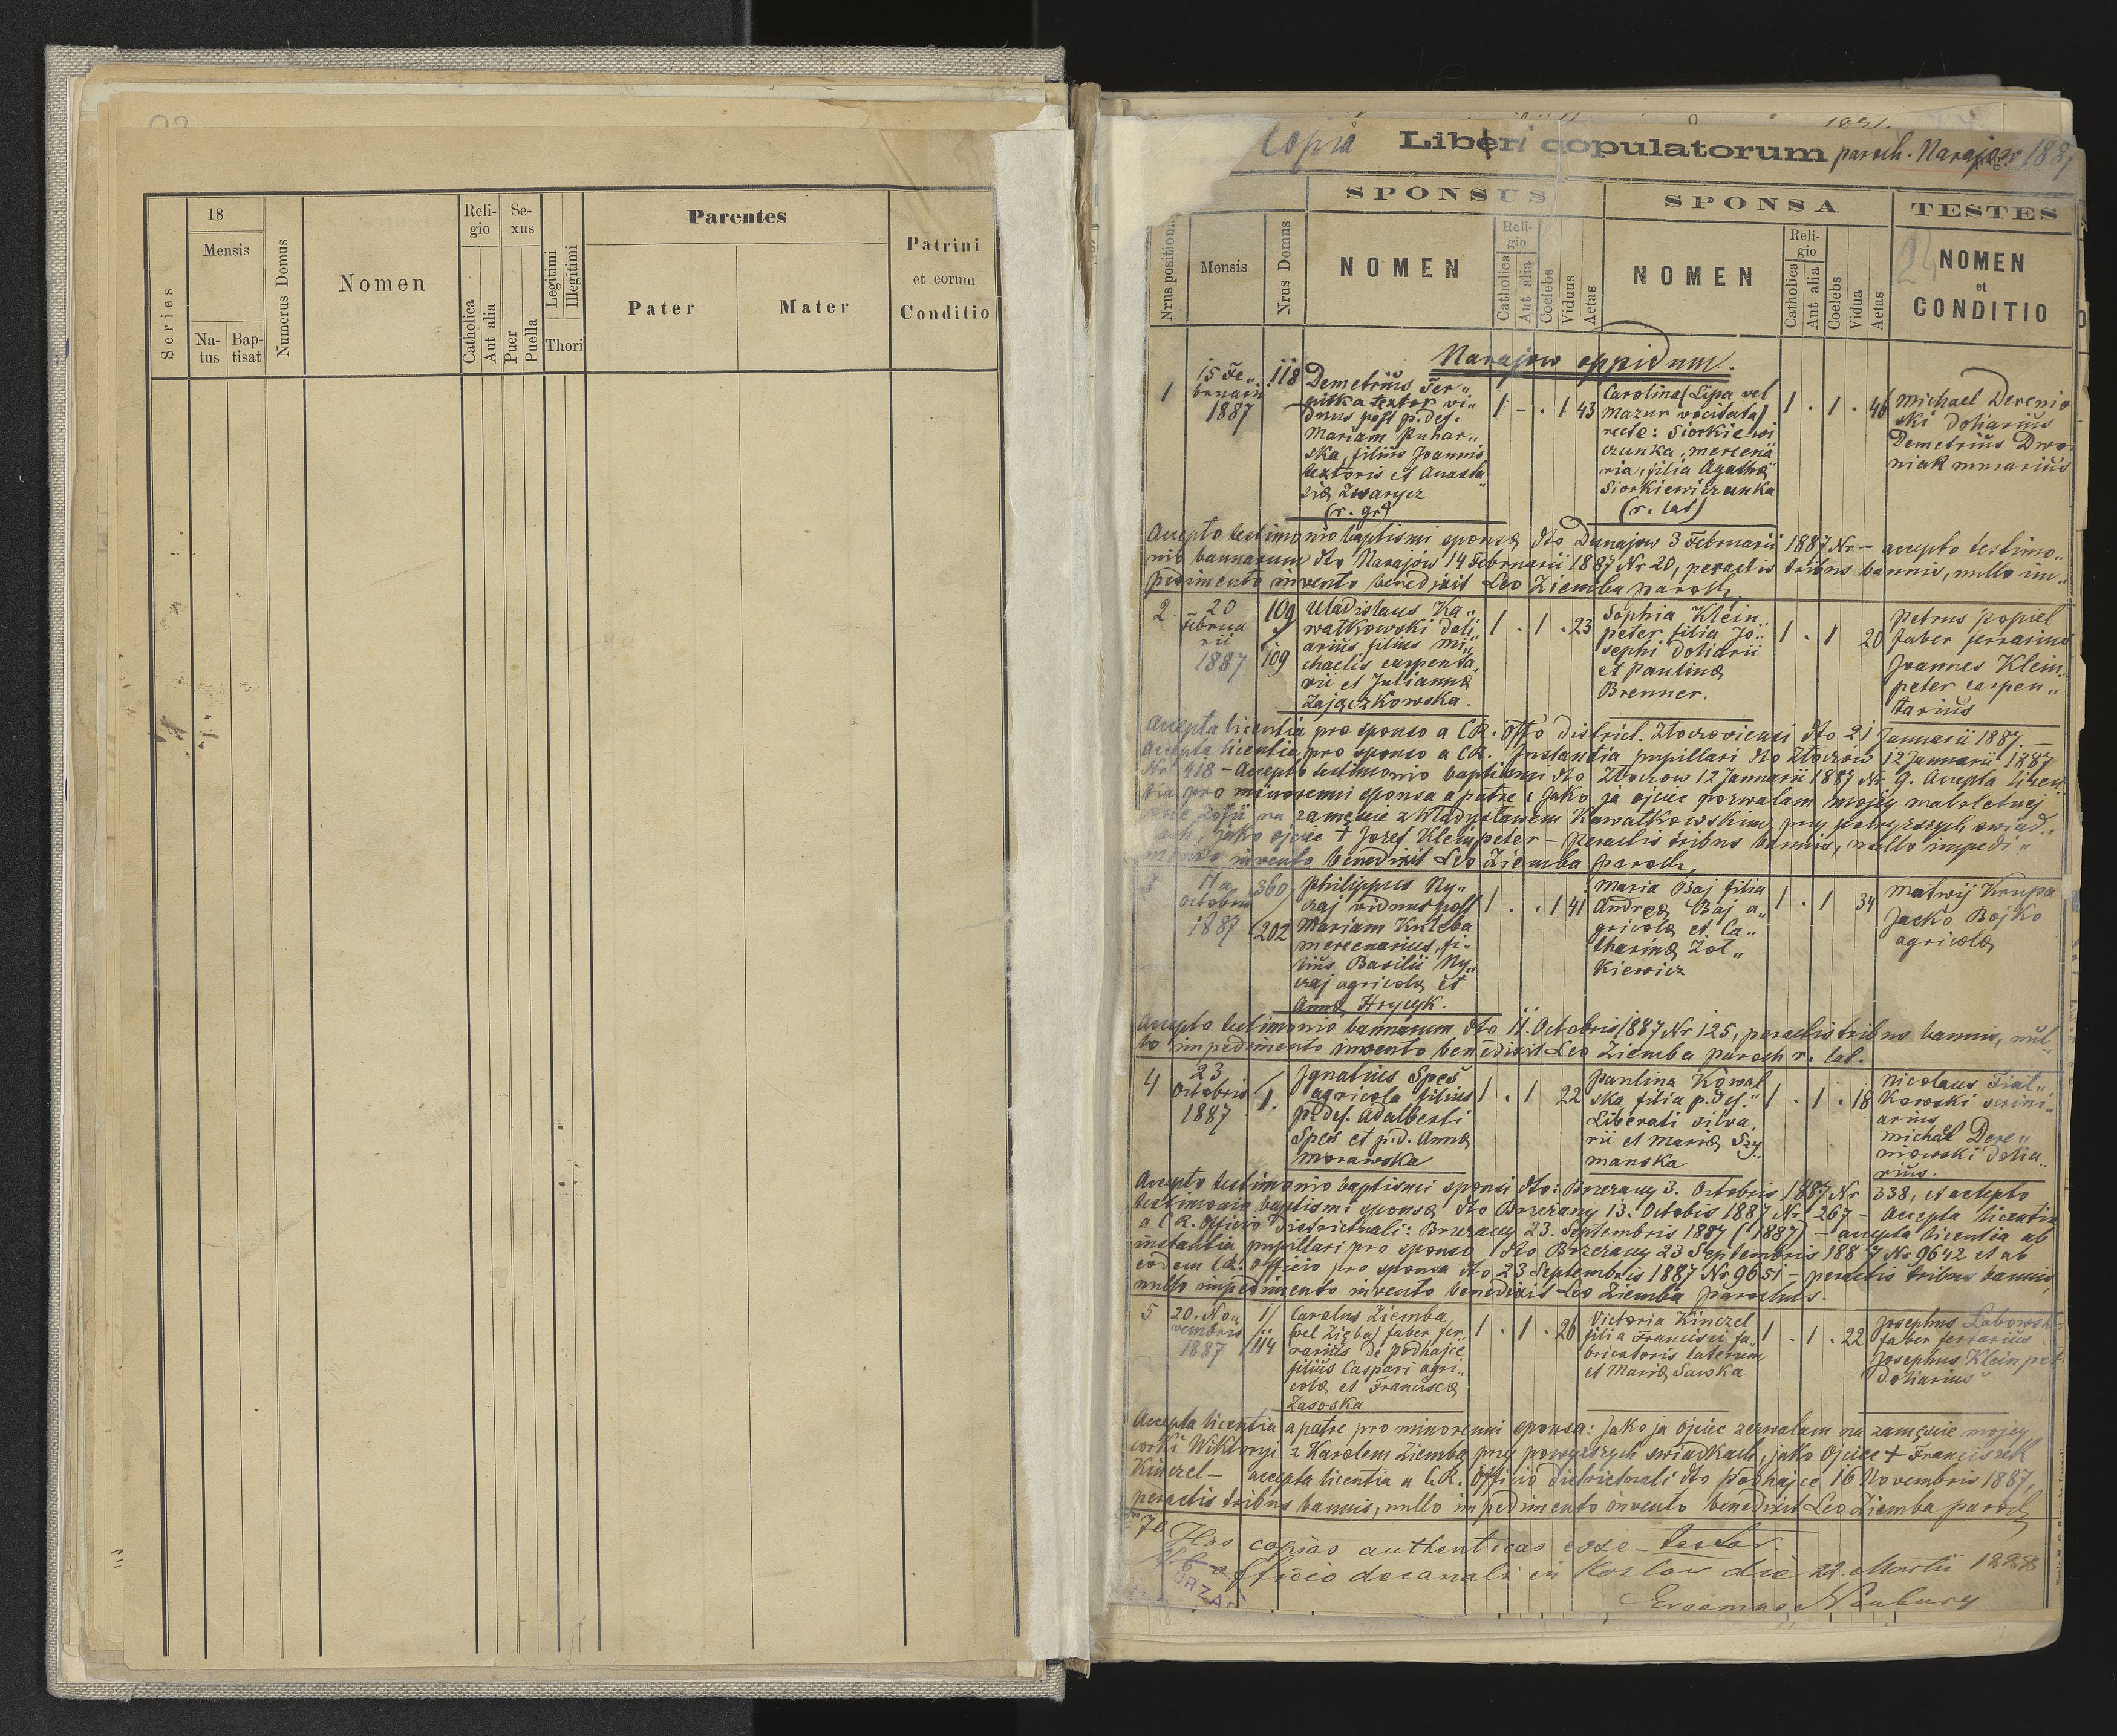 18
Mensis
Series
Na-
tus
Bap-
tisat
Numerus Domus
Nomen
Reli-
gio
Catholica
Aut alia
Se-
xus
Puer
Puella
Legitimi
Illegitimi
Thori
Parentes
Pater
Mater
Patrini
et eorum
Conditio
Copia Liberi copulatorum paroch. Narajow 1887
SPONSUS
SPONSA
TESTES
Nrus positionis
Mensis
Nrus Domus
NOMEN
Reli-
gio
Catholica
Aut alia
Coelebs
Viduus
Aetas
NOMEN
Reli-
gio
Catholica
Aut alia
Coelebs
Vidua
Aetas
24
NOMEN
et
CONDITIO
Narajow oppidum.
1
15 Fe„
bruarii
1887
118
Demetrius Fer„
nitka textor vi„
duus post p. def.
Mariam Puhar„
ska, filius Joannis
textoris et Anasta„
siæ Zwarycz
(r. gr)
1 - . 1 43
Carolina (Lipa vel
Mazur vocitata)
recte: Siorkiewi
czunka, mercena„
ria, filia Agathæ
Siorkiewiczunka
(r. lat)
1 . 1 . 46
Michael Derenio
ski doliarius
Demetrius Dwo
niak murarius
Accepto testimonio baptismi sponsæ dto Dunajow 3 Februarii 1887 Nr – accepto testimo„
nio bannorum dto Narajow 14 Februarii 1887 Nr 20, peractis tribus bannis, nullo im„
pedimento invento benedixit Leo Ziemba paroch,
2.
20
Februa
rii
1887
109
109
Uladislaus Ka„
watkowski doli
arius filius Mi„
chaelis carpenta„
rii et Juliannæ
Zajączkowska.
1 . 1 . 23
Sophia Klein„
peter filia Jo„
sephi doliarii
et Paulinæ
Brenner.
1 . 1 20
Petrus Popiel
faber ferrarius
Joannes Klein„
peter carpen„
tarius
Accepta licentia pro sponso a CR. Offo district. Złoczoviensi dto 21 Januarii 1887. –
Accepta licentia pro sponso a CR. Instantia pupillari dto Złoczow 12 Januarii 1887
Nr 418 – Accepto testimonio baptismi dto Złoczow 12 Januarii 1887 Nr 9. Accepta licen„
tia pro minorenni sponsa a patre: Jako ja ojciec pozwalam mojej małoletniej
Zofii na zamęście z Władysławem Kawatkowskim przy powyższych swiad„
jako ojciec + Jozef Kleinpeter – Peractis tribus bannis, nullo impedi„
mento invento benedixit Leo Ziemba paroch,
3
11a
Octobris
1887
360
202
Philippus Ny„
czaj viduus post
Mariam Kukleba
mercenarius, fi„
lius Basilii Ny„
czaj agricolæ et
Annæ Hrycyk.
1 . . 1 41
Maria Baj filia
Andreæ Baj a„
gricolæ et Ca„
tharinæ Zol„
kiewicz
1 . 1 34
Matwij Krupa
Jacko Bojko
agricolæ
Accepto testimonio bannorum dto 11. Octobris 1887 Nr 125, peractis tribus bannis, nul„
lo impedimento invento benedixit Leo Ziemba paroch r. lat.
4
23
Octobris
1887
1.
Ignatius Spes
agricola filius
p. def. Adalberti
Spes et p.d. Annæ
Morawska
1 . 1 22
Paulina Kowal
ska filia p. def.
Liberati silva„
rii et Mariæ Szy„
manska
1 . 1 . 18
Nicolaus Fiat„
kowski scrini„
arius
Michael Dere„
niowski dolia„
rius.
Accepto testimonio baptismi sponsi dto: Brzezany 3. Octobris 1887 Nr 338, et accepto
testimonio baptismi sponsæ dto Brzezany 13. Octobis 1887 Nr 267 – Accepta licentia
a CR. Officio districtuali: Brzezany 23. Septembris 1887 (1887) – accepta licentia ab
instantia pupillari pro sponso dto Brzezany 23 Septembris 1887 Nr 9642 et ab
eodem CR. Officio pro sponsa dto 23 Septembris 1887 Nr 9651 – peractis tribus bannis,
nullo impedimento invento benedixit Leo Ziemba parochus.
5
20. No„
vembris
1887
1/
114
Carolus Ziemba
(vel Zięba) faber fer„
rarius de Podhajce
filius Caspari agri„
colæ et Franciscæ
Zasoska
1 . 1 . 26
Victoria Kinczel
filia Francisci fa„
bricatoris laterum
et Mariæ Sawka
1 . 1 . 22
Josephus Labowsk
faber ferrarius
Josephus Kleinpet
doliarius
Accepta licentia a patre pro minorenni sponsa: Jako ja Ojciec zezwalam na zamęście mojej
corki Wiktoryi z Karolem Ziembą przy powyższych swiadkach, jako Ojciec + Franciszek
Kinczel – accepta licentia a CR. Officio districtuali dto Podhajce 16 Novembris 1887,
peractis tribus bannis, nullo impedimento invento benedixit Leo Ziemba paroch,
70
Has copias authenticas esse testor.
Ab officio decanali in Kozlow die 22. Martii 1888
Erasmus Neuburg